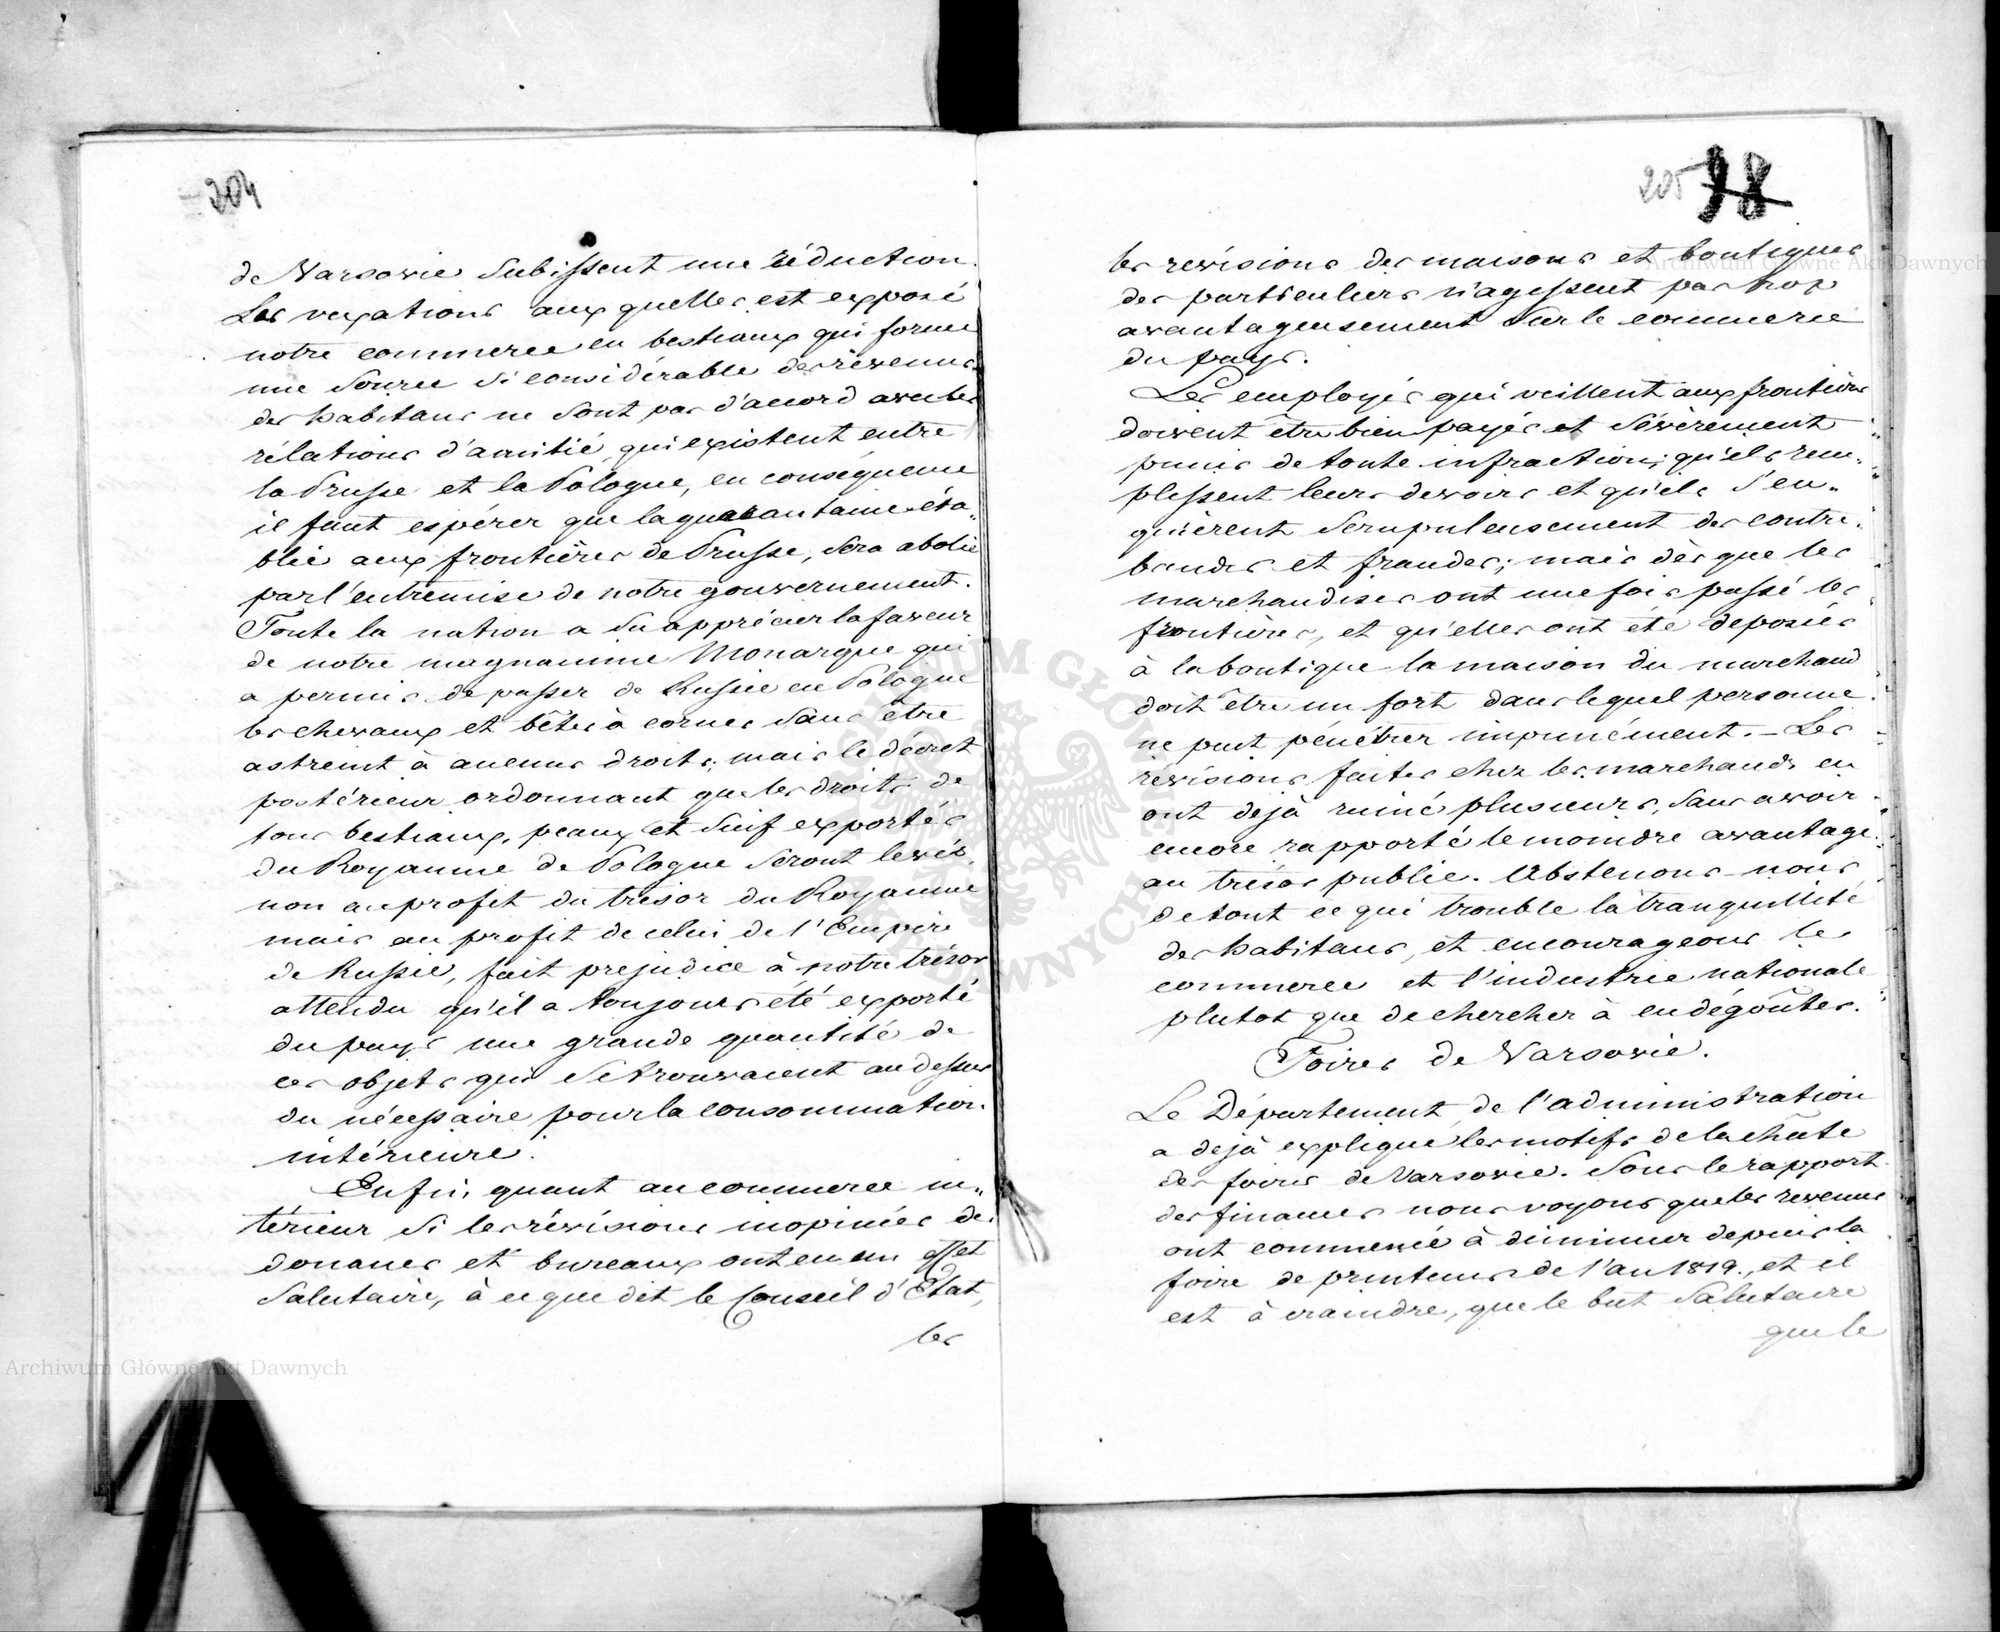 204
de Varsovie subissent une réduction.
Les vexations aux quelles est exposé
notre commerce en bestiaux qui forme
une source si considérable des révenus
des habitans ne sont pas d'accord avec les
rélations d'amitié, qui existent entre
la Prusse et la Pologne, en conséquence
il faut espérer que la quarantaine éta„
blie aux frontières de Prusse, sera abolie
par l'entremise de notre gouvernement.
Toute la nation a su apprécier la faveur
de notre magnanime Monarque qui
a permis de passer de Russie en Pologne
les chevaux et bêtes à cornes sans être
astreint à aucuns droits; mais le décret
postérieur ordonnant que les droits de
tous bestiaux, peaux et suif exportés
du Royaume de Pologne seront levés,
non au profit du trésor du Royaume
mais au profit de celui de l'Empire
de Russie, fait prejudice à notre trésor
attendu qu'il a toujours été exporté
du pays une grande quantité de
ces objets qui se trouvaient au dessus
du nécessaire pour la consommation
intérieure.
Enfin, quant au commerce in„
térieur si les révisions inopinées des
douanes et bureaux ont eu un effet
salutaire, à ce que dit le Conseil d'Etat,
les
205 98
les revisions des maisons et boutiques
des particuliers n'agissent pas trop
avantageusement sur le commerce
du pays.
Les employés qui veillent aux frontières
doivent être bien payés et sévèrement
punis de toute infraction; qu'ils rem„
plissent leurs devoirs et qu'ils s'en„
quièrent scrupuleusement des contre„
bandes et fraudes; mais dès que les
marchandises ont une fois passé les
frontières, et qu'elles ont été deposées
à la boutique la maison du marchand
doit être un fort dans lequel personne
ne peut pénétrer impunément. – Les
révisions faites chez les marchands en
ont dejà ruiné plusieurs, sans avoir
encore rapporté le moindre avantage
au trésor public. Abstenons-nous
de tout ce qui trouble la tranquillité
des habitans, et encourageons le
commerce et l'industrie nationale
plutot que de chercher à en dégoûter.
Foires de Varsovie.
Le Département de l'administration
a dejà expliqué les motifs de la chûte
des foires de Varsovie. Sous le rapport
des finances nous voyons que les revenus
ont commencé à diminuer depuis la
foire de printems de l'an 1819., et il
est à craindre, que le but salutaire
que le
Archiwum Główne Akt Dawnych
Archiwum Główne Akt Dawnych
ARCHIWUM GŁÓWNE AKT DAWNYCH